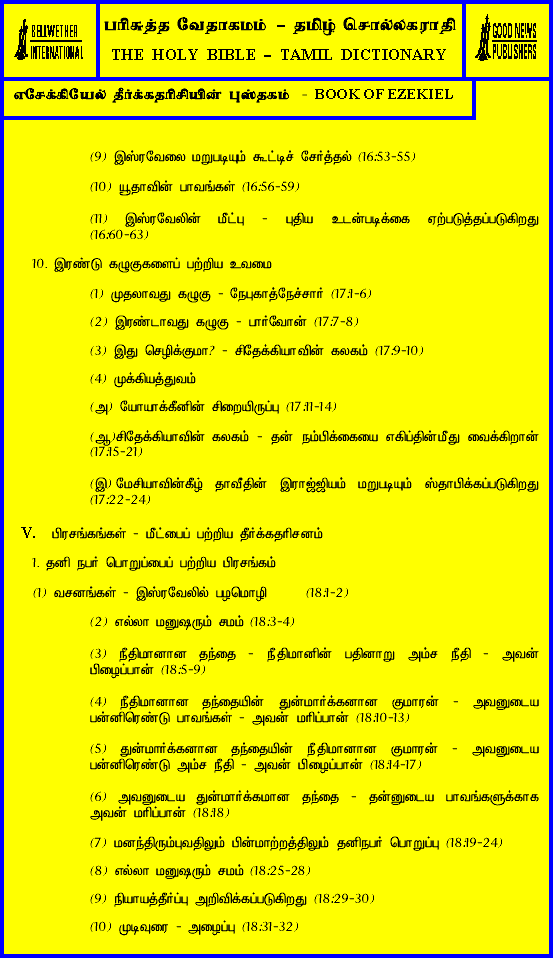 BELLWETHER
INTERNATIONAL
பரிசுத்த வேதாகமம் – தமிழ் சொல்லகராதி
THE HOLY BIBLE – TAMIL DICTIONARY
GOOD NEWS
PUBLISHERS
எசேக்கியேல் தீர்க்கதரிசியின் புஸ்தகம் - BOOK OF EZEKIEL
(9) இஸ்ரவேலை மறுபடியும் கூட்டிச் சேர்த்தல் (16:53-55)
(10) யூதாவின் பாவங்கள் (16:56-59)
(11) இஸ்ரவேலின் மீட்பு - புதிய உடன்படிக்கை ஏற்படுத்தப்படுகிறது
(16:60-63)
10. இரண்டு கழுகுகளைப் பற்றிய உவமை
(1) முதலாவது கழுகு - நேபுகாத்நேச்சார் (17:1-6)
(2) இரண்டாவது கழுகு - பார்வோன் (17:7-8)
(3) இது செழிக்குமா? - சிதேக்கியாவின் கலகம் (17:9-10)
(4) முக்கியத்துவம்
(அ) யோயாக்கீனின் சிறையிருப்பு (17:11-14)
(ஆ)சிதேக்கியாவின் கலகம் - தன் நம்பிக்கையை எகிப்தின்மீது வைக்கிறான்
(17:15-21)
(இ) மேசியாவின்கீழ் தாவீதின் இராஜ்ஜியம் மறுபடியும் ஸ்தாபிக்கப்படுகிறது
(17:22-24)
V. பிரசங்கங்கள் - மீட்பைப் பற்றிய தீர்க்கதரிசனம்
1. தனி நபர் பொறுப்பைப் பற்றிய பிரசங்கம்
(1) வசனங்கள் - இஸ்ரவேலில் பழமொழி (18:1-2)
(2) எல்லா மனுஷரும் சமம் (18:3-4)
(3) நீதிமானான தந்தை - நீதிமானின் பதினாறு அம்ச நீதி - அவன்
பிழைப்பான் (18:5-9)
(4) நீதிமானான தந்தையின் துன்மார்க்கனான குமாரன் - அவனுடைய
பன்னிரெண்டு பாவங்கள் - அவன் மரிப்பான் (18:10-13)
(5) துன்மார்க்கனான தந்தையின் நீதிமானான குமாரன் - அவனுடைய
பன்னிரெண்டு அம்ச நீதி - அவன் பிழைப்பான் (18:14-17)
(6) அவனுடைய துன்மார்க்கமான தந்தை - தன்னுடைய பாவங்களுக்காக
அவன் மரிப்பான் (18:18)
(7) மனந்திரும்புவதிலும் பின்மாற்றத்திலும் தனிநபர் பொறுப்பு (18:19-24)
(8) எல்லா மனுஷரும் சமம் (18:25-28)
(9) நியாயத்தீர்ப்பு அறிவிக்கப்படுகிறது (18:29-30)
(10) முடிவுரை - அழைப்பு (18:31-32)